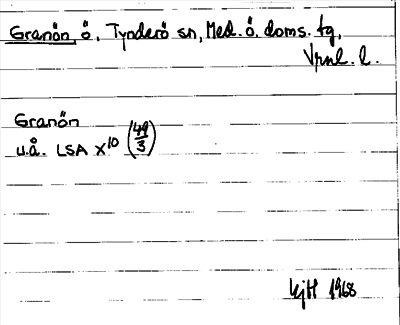 Granön ö, Tynderö sn, Med. ö. doms. tg,
Vrnl. l.
Granön
u.å. LSA X¹⁰ (49/3)
KjH 1968